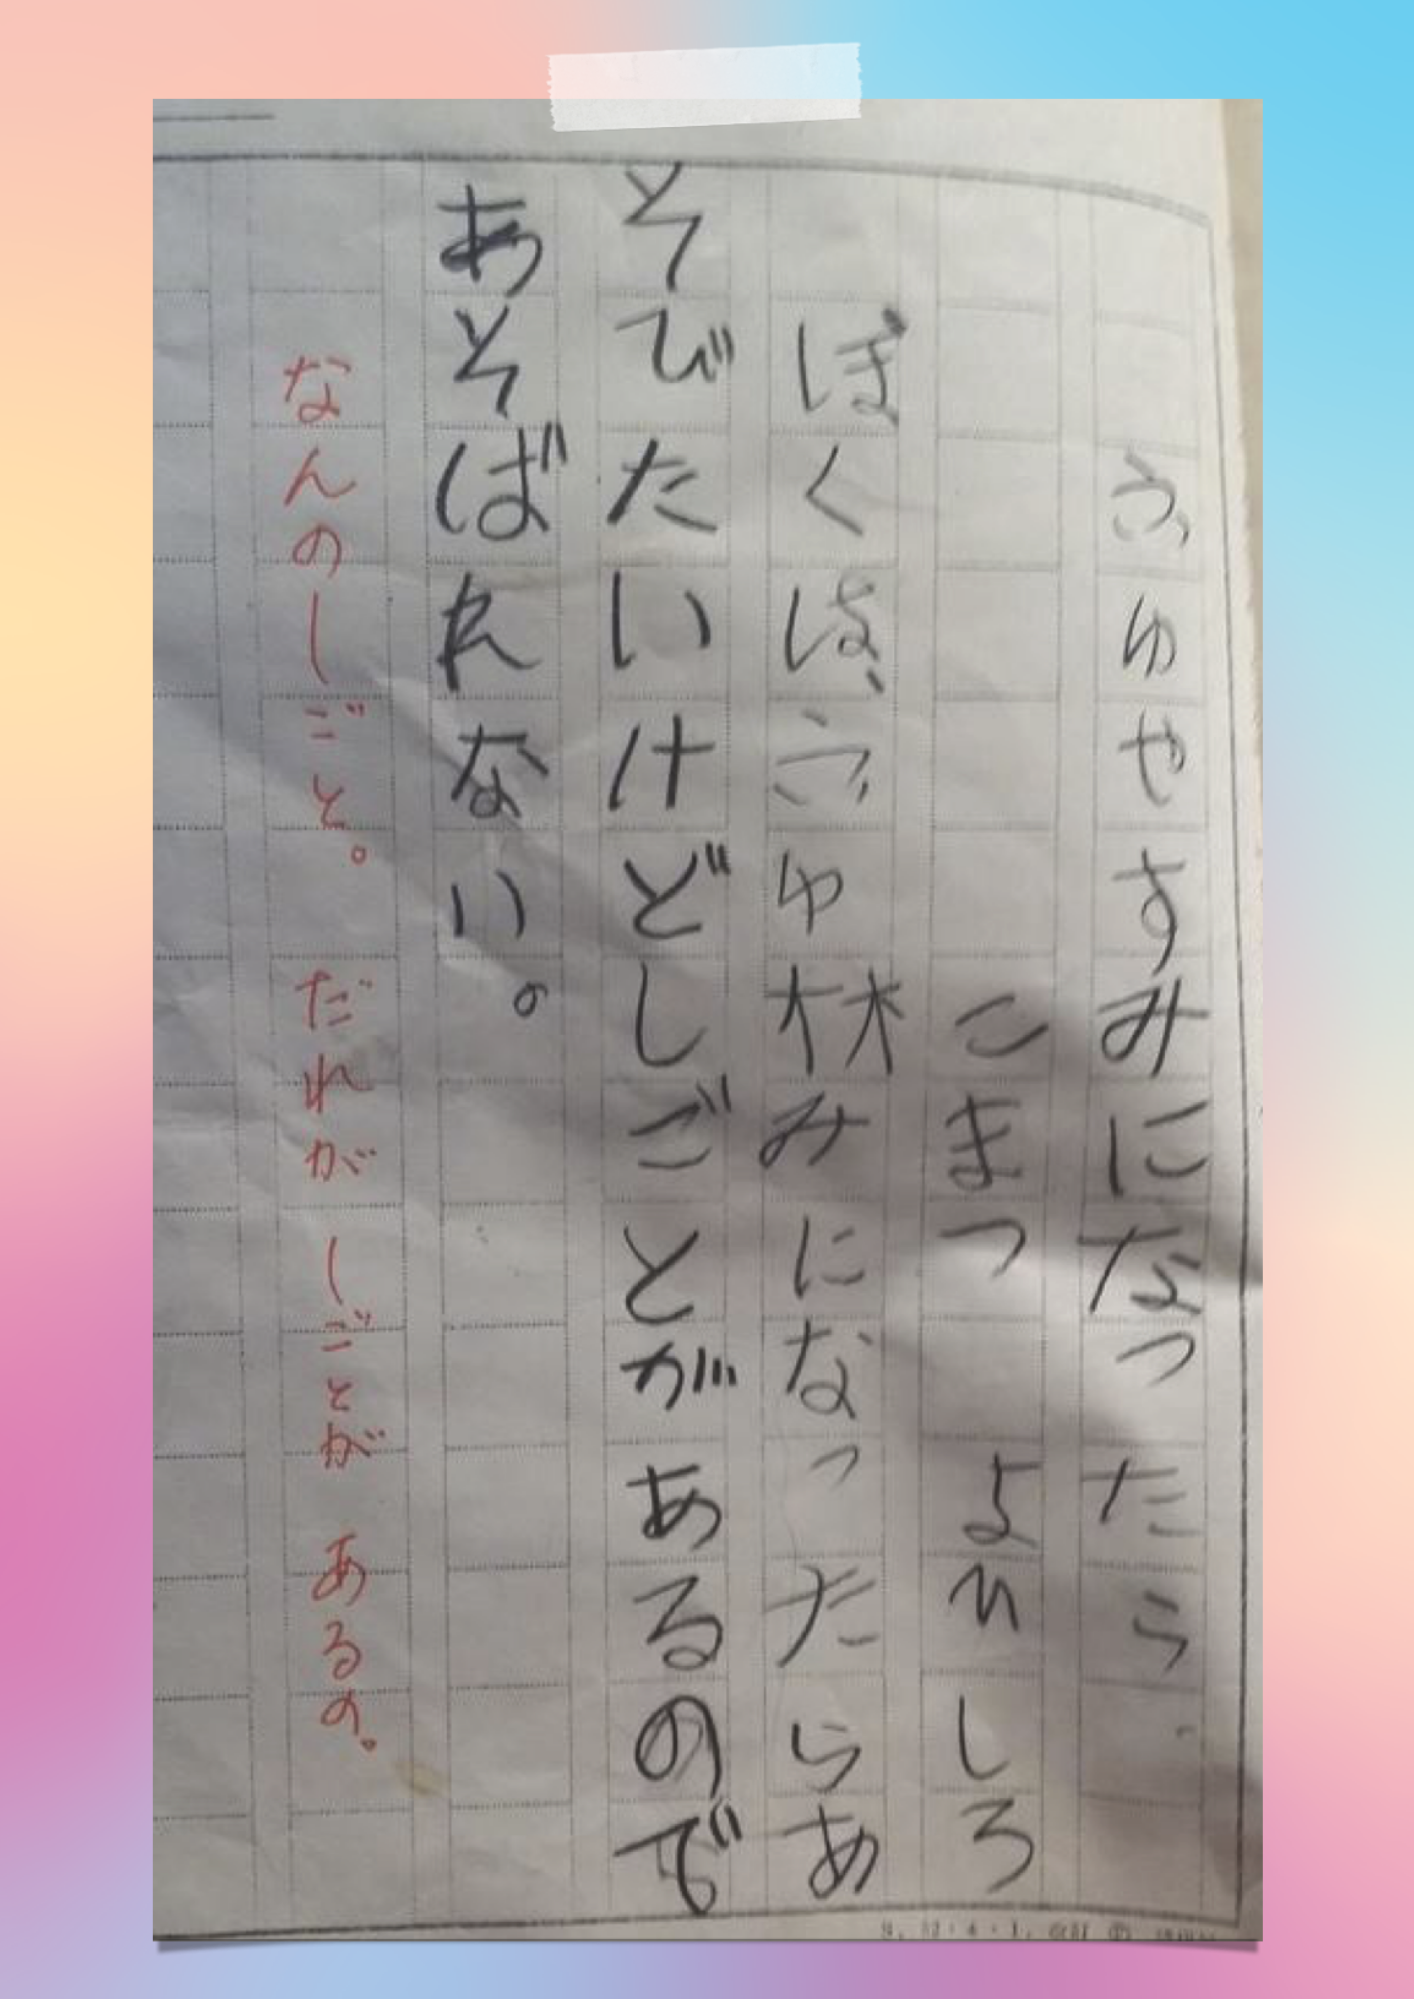 ふゆやすみになったら
こまつ よひしろ
ぼくは、ふゆ林みになったらあ
そびたいけどしごとがあるので
あそばれない。
なんのしごと。 だれが しごとが あるの。